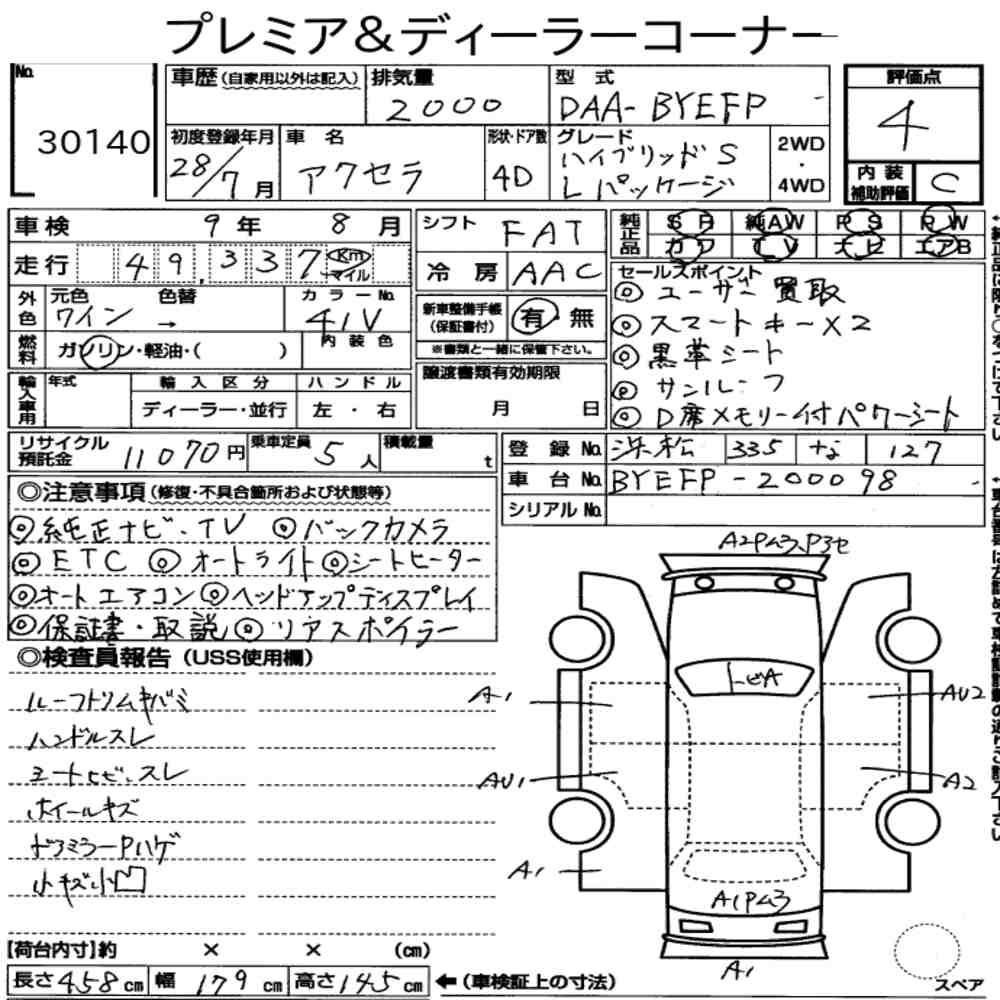 プレミア&ディーラーコーナー
No. 30140
車歴 (自家用以外は記入)
排気量 2000
型式 DAA-BYEFP
評価点 4
初度登録年月 28/7月
車名 アクセラ
形状・ドア数 4D
グレード ハイブリッドS
Lパッケージ
2WD
・
4WD
内装
補助評価 C
車検 9年 8月
シフト FAT
純正品 SR 純AW PS PW
カワ TV ナビ エアB
走行 49,337 Km
マイル
冷房 AAC
セールスポイント
◎ユーザー買取
◎スマートキーX2
◎黒革シート
◎サンルーフ
◎D席メモリー付パワーシート
外色 元色 色替 カラーNo.
ワイン → 41V
内装色
新車整備手帳
(保証書付) 有・無
※書類と一緒に保管下さい。
燃料 ガソリン・軽油・( )
譲渡書類有効期限
月 日
輸入車用 年式 輸入区分 ハンドル
ディーラー・並行 左・右
リサイクル
預託金 11070円
乗車定員 5人
積載量 t
登録No. 浜松 335 な 127
車台No. BYEFP-200098
シリアルNo.
◎注意事項 (修復・不具合箇所および状態等)
◎純正ナビ・TV ◎バックカメラ
◎ETC ◎オートライト ◎シートヒーター
◎オートエアコン ◎ヘッドアップディスプレイ
◎保証書・取説 ◎リアスポイラー
◎検査員報告 (USS使用欄)
ルーフトリムキバミ
ハンドルスレ
シートヒビ、スレ
ホイールキズ
ドアミラーPハゲ
小キズ小凹
A2Pム3、P3セ
トビA
A1
AU2
AU1
A2
A1
A1Pム3
A1
スペア
【荷台内寸】約 × × (cm)
長さ458cm 幅179cm 高さ145cm ←(車検証上の寸法)